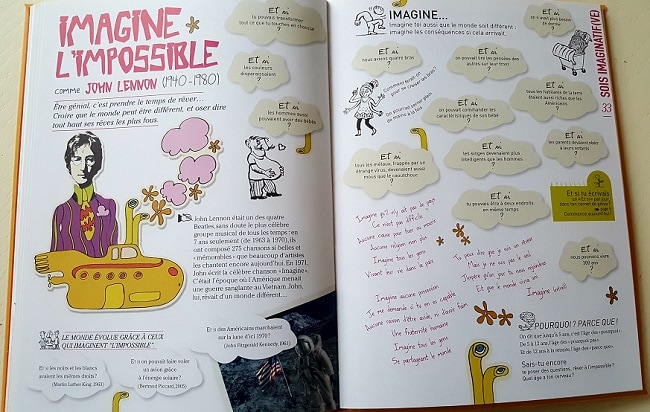 IMAGINE
L'IMPOSSIBLE
COMME JOHN LENNON (1940-1980)
Être génial, c'est prendre le temps de rêver...
Croire que le monde peut être différent, et oser dire
tout haut ses rêves les plus fous.
Et si
tu pouvais transformer
tout ce que tu touches en chocolat
?
Et si
les couleurs
disparaissaient
?
Et si
les hommes aussi
pouvaient avoir des bébés
?
John Lennon était un des quatre
Beatles, sans doute le plus célèbre
groupe musical de tous les temps : en
7 ans seulement (de 1963 à 1970), ils
ont composé 275 chansons si belles et
« mémorables » que beaucoup d'artistes
les chantent encore aujourd'hui. En 1971,
John écrit la célèbre chanson « Imagine ».
C'était l'époque où l'Amérique menait
une guerre sanglante au Vietnam. John,
lui, rêvait d'un monde différent...
LE MONDE ÉVOLUE GRÂCE À CEUX
QUI IMAGINENT "L'IMPOSSIBLE".
Et si des Américains marchaient
sur la lune d'ici 1970 ?
(John Fitzgerald Kennedy, 1961)
Et si les noirs et les blancs
avaient les mêmes droits ?
(Martin Luther King, 1963)
Et si on pouvait faire voler
un avion grâce
à l'énergie solaire ?
(Bertrand Piccard, 2005)
IMAGINE...
Imagine toi aussi que le monde soit différent :
imagine les conséquences si cela arrivait...
Et si
?
Et si
nous avions quatre bras
?
Et si
on pouvait lire les pensées
des autres sur leur front
?
Comment ferait-on
pour se croiser les bras ?
On pourrait serrer plein
de mains à la fois
Et si
tous les habitants de la terre
étaient aussi riches que les
Américains
?
Et si
on pouvait commander les
caractéristiques de son bébé
?
Et si
les parents devaient obéir
à leurs enfants
?
Et si
tous les métaux, frappés par un
étrange virus, devenaient aussi
mous que le caoutchouc
?
Et si
les singes devenaient plus
intelligents que les hommes
?
Et si
tu pouvais être à deux endroits
en même temps
?
Et si tu écrivais
Commence aujourd'hui !
Et si
nous pouvions vivre
300 ans
?
SOIS IMAGINATIF(VE)
33
Imagine qu'il n'y ait pas de pays
Ce n'est pas difficile
Aucune cause pour tuer ou mourir
Aucune religion non plus
Imagine tous les gens
Vivant leur vie dans la paix
Imagine aucune possession
Je me demande si tu en es capable
Aucune raison d'être avide, ni d'avoir faim
Une fraternité humaine
Imagine tous les gens
Se partageant le monde
Tu peux dire que je suis un rêveur
Mais je ne suis pas le seul
J'espère qu'un jour tu nous rejoindras
Et que le monde vivra uni
POURQUOI ? PARCE QUE !
Sais-tu encore
te poser des questions, rêver à l'impossible ?
Quel âge a ton cerveau ?